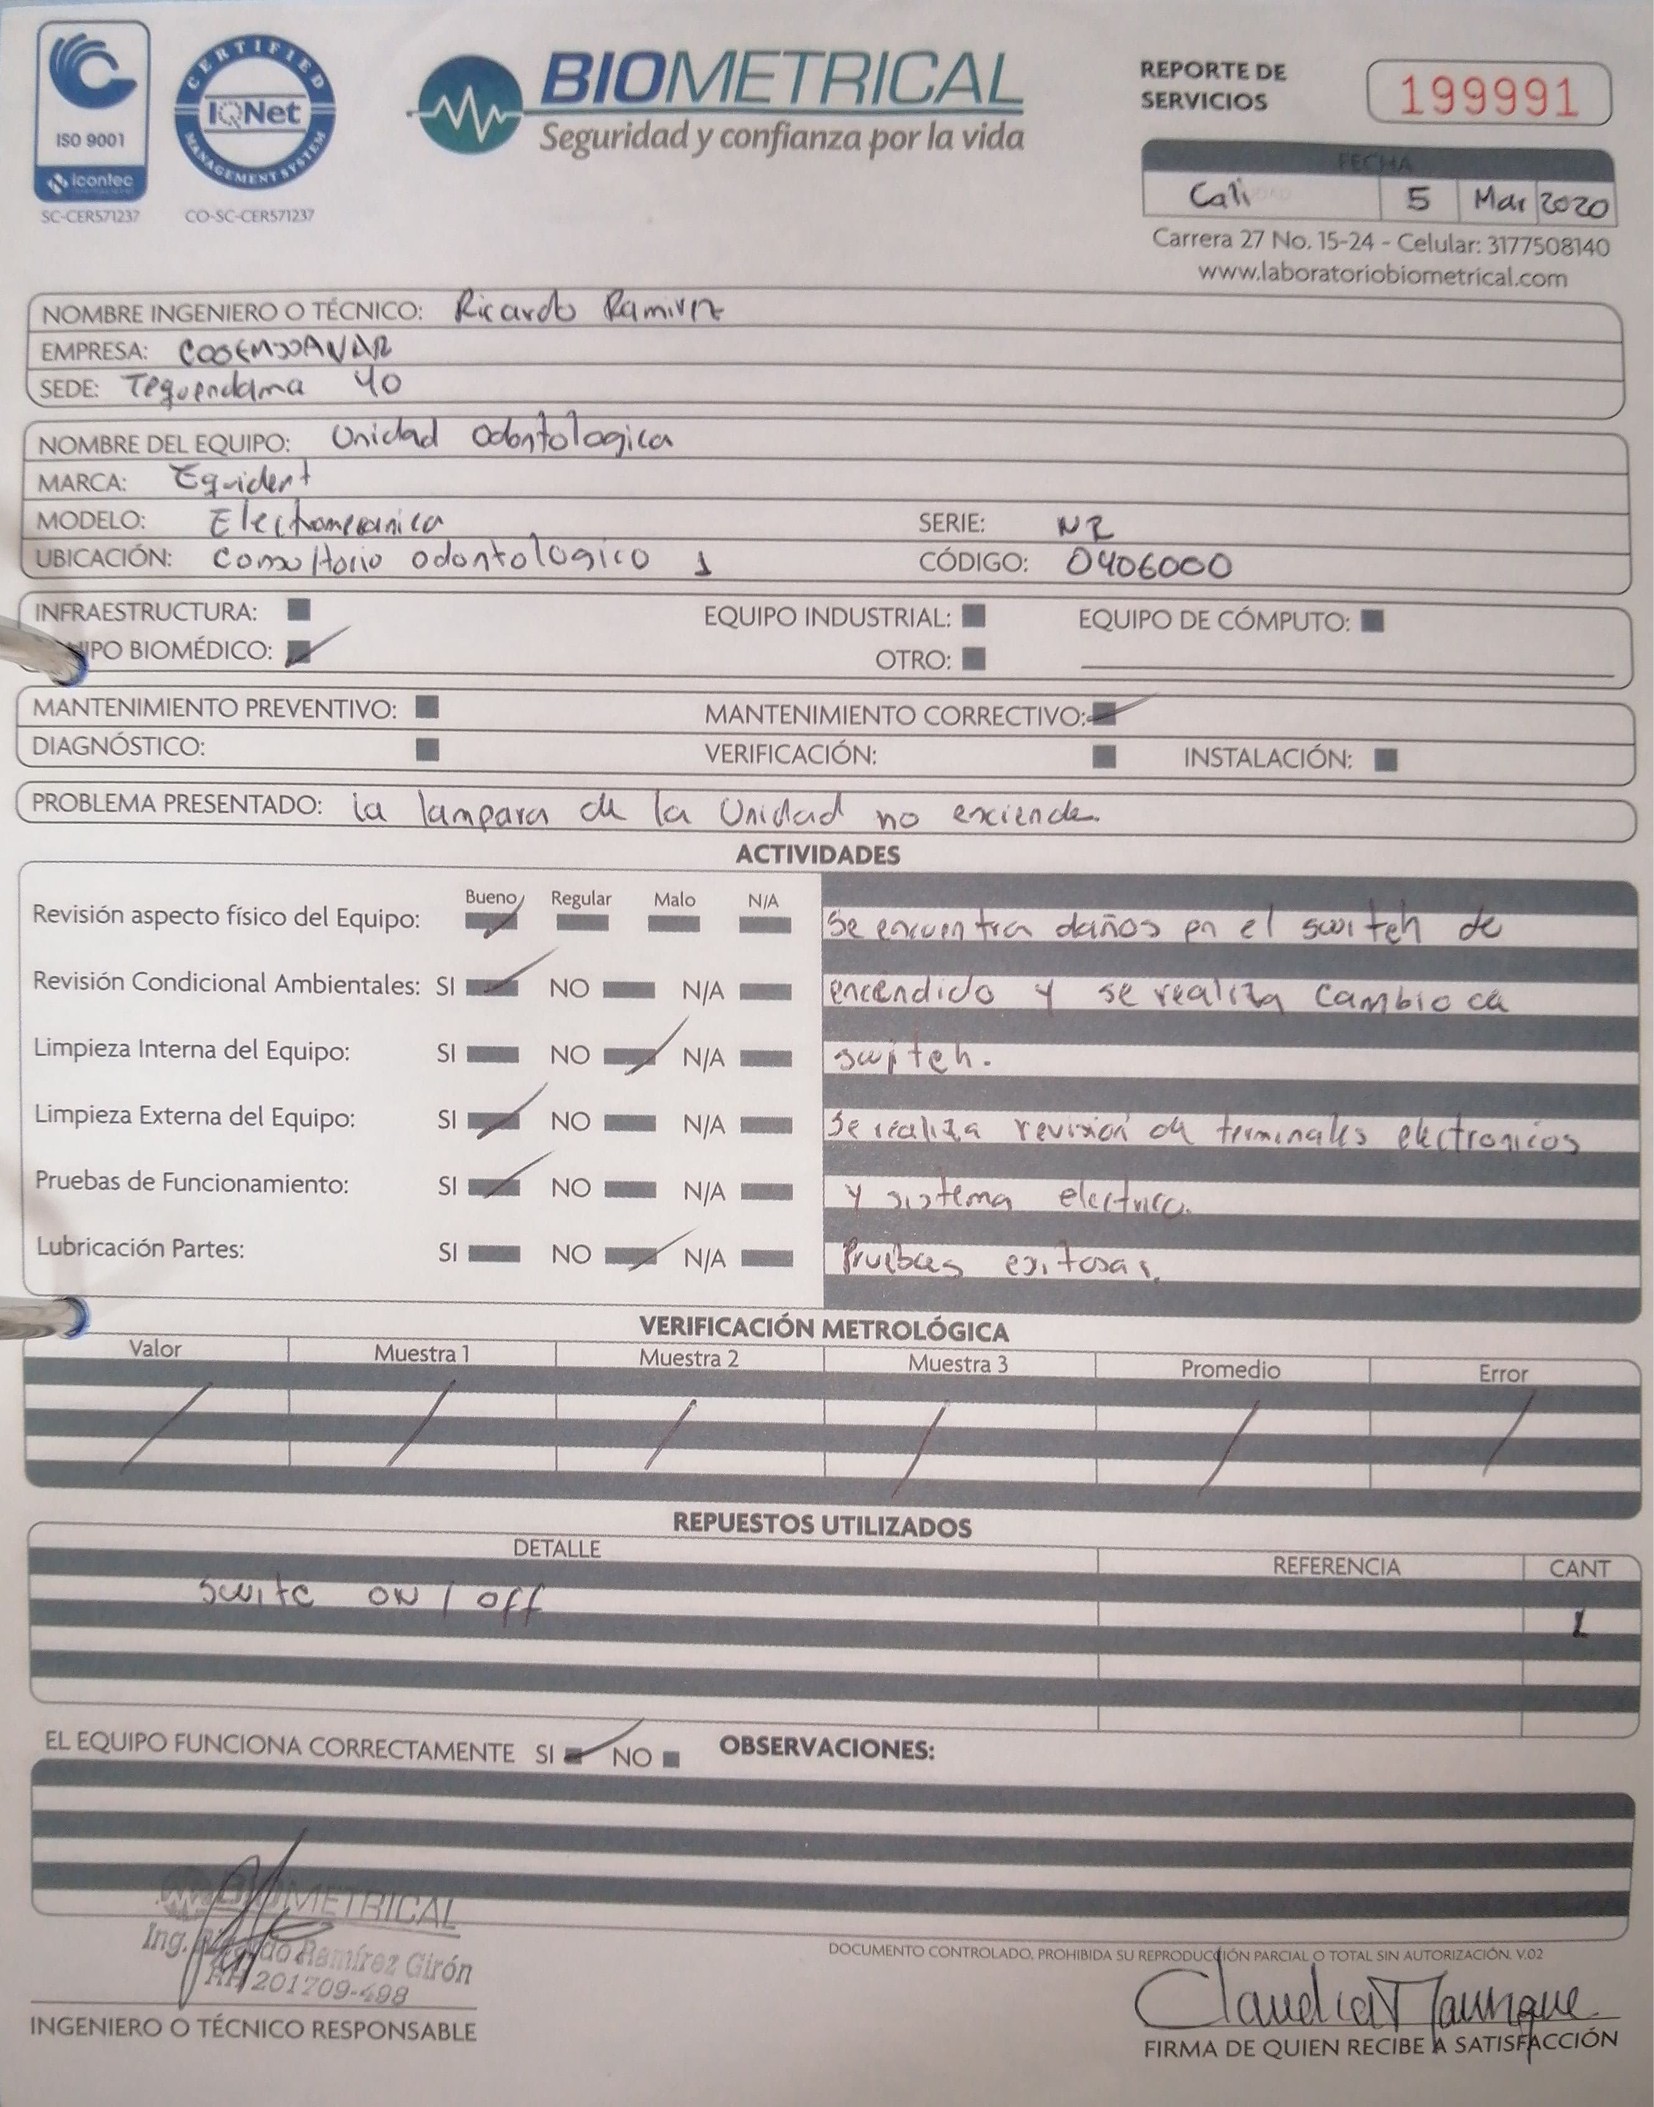 ISO 9001
icontec
SC-CER571237
CERTIFIED
IQNet
MANAGEMENT SYSTEM
CO-SC-CER571237
BIOMETRICAL
Seguridad y confianza por la vida
REPORTE DE
SERVICIOS
199991
FECHA
Cali 5 Mar 2020
Carrera 27 No. 15-24 - Celular: 3177508140
www.laboratoriobiometrical.com
NOMBRE INGENIERO O TÉCNICO: Ricardo Ramirez
EMPRESA:
SEDE: Tequendama 40
NOMBRE DEL EQUIPO: Unidad Odontologica
MARCA: Equident
MODELO: Electromecanica SERIE: NR
UBICACIÓN: Consultorio odontologico 1 CÓDIGO: 0406000
INFRAESTRUCTURA: EQUIPO INDUSTRIAL: EQUIPO DE CÓMPUTO:
IPO BIOMÉDICO: OTRO:
MANTENIMIENTO PREVENTIVO: MANTENIMIENTO CORRECTIVO:
DIAGNÓSTICO: VERIFICACIÓN: INSTALACIÓN:
PROBLEMA PRESENTADO: la lampara de la Unidad no enciende.
ACTIVIDADES
Bueno Regular Malo N/A
Revisión aspecto físico del Equipo: Se encuentra daños en el switch de
Revisión Condicional Ambientales: SI NO N/A encendido y se realiza cambio de
Limpieza Interna del Equipo: SI NO N/A switch.
Limpieza Externa del Equipo: SI NO N/A Se realiza revisión de terminales electronicos
Pruebas de Funcionamiento: SI NO N/A y sistema electrico.
Lubricación Partes: SI NO N/A Pruebas exitosas.
VERIFICACIÓN METROLÓGICA
Valor Muestra 1 Muestra 2 Muestra 3 Promedio Error
REPUESTOS UTILIZADOS
DETALLE REFERENCIA CANT
switc ON / Off 1
EL EQUIPO FUNCIONA CORRECTAMENTE SI NO OBSERVACIONES:
BIOMETRICAL
Ing. Ricardo Ramírez Girón
RH 201709-498
INGENIERO O TÉCNICO RESPONSABLE
DOCUMENTO CONTROLADO, PROHIBIDA SU REPRODUCCIÓN PARCIAL O TOTAL SIN AUTORIZACIÓN. V.02
Claudia Manrique
FIRMA DE QUIEN RECIBE A SATISFACCIÓN